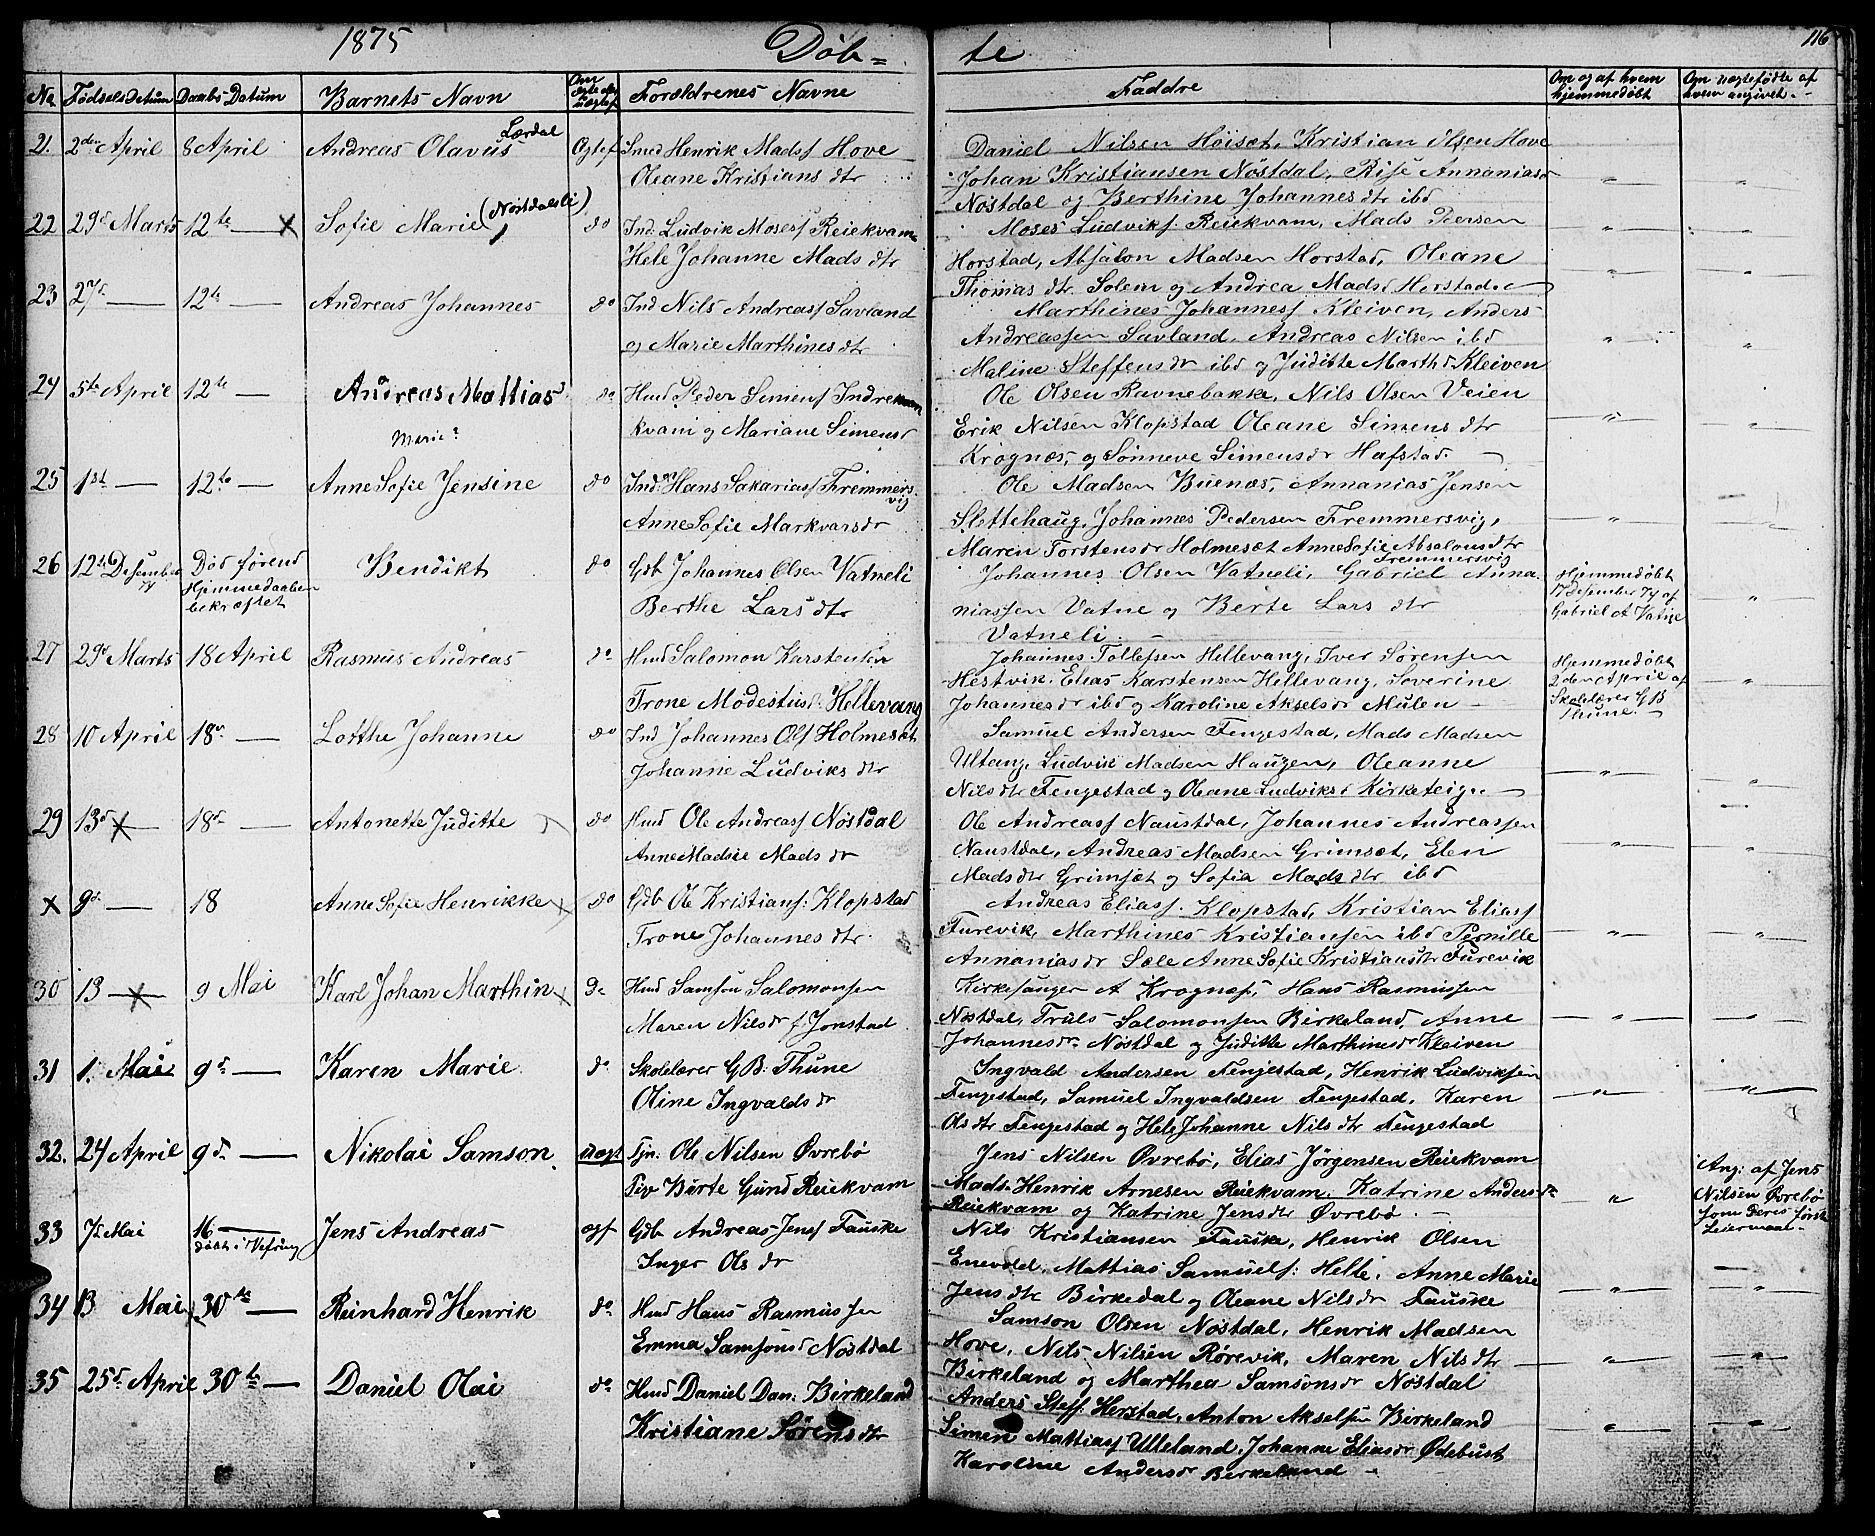 1875 Døb= te 116
No Fødsels Datum Daabs-Datum Barnets Navn Om ægte eller uægtef Forældrenes Navne Faddre Om og af hvem hjemmedøbt Om uægtefødte af hvem angivet.
21. 2den April 8 April Andreas Olavus Lærdal Ægtef Smed Henrik Madsf Hove
Oleane Kristians dtr
Daniel Nilsen Höiset, Kristian Olsen Hove
Johan Kristiansen Nöstdal, Rise Annaniasdr
Nöstdal og Berthine Johannes dtr ibd
22 29d Marts 12te — x Sofie Marie (Nöstdalsli) do Ind: Ludvik Mosesf Reiekvam
Hele Johanne Mads dtr
Moses Ludviksf Reiekvam, Mads Peersen
Horstad, Absalon Madsen Horstad, Oleane
Thomas dtr Solem og Andrea Madsd Horstad
23 27d — 12te — Andreas Johannes do Ind Nils Andreasf Savland
og Marie Marthines dtr
Marthines Johannesf Kleiven, Anders
Andreassen Savland, Andreas Nilsen ibd
Maline Steffensdr ibd og Juditte Marthd Kleiven
24 5te April 12te — Andreas Mattias do Hmd Peder Simensf Indre
kvam og Mariane Simensd
Ole Olsen Ravnebakke, Nils Olsen Veien
Erik Nilsen Klopstad Oleane Simens dtr
Krognæs, og Sønneve Simensdr Hafstad. —
Marie?
25 1st — 12te — Anne Sofie Jensine do Ind: Hans Sakariasf Fremmersvig
Anne Sofie Markvarsdr
Ole Madsen Buenæs, Annanias Jensen
Slettehaug, Johannes Pedersen Fremmersvig,
Maren Torstensdr Holmeset Anne Sofie Absalonsdtr
Fremmersvig
26 12te Desember 74 Død førend Hjemmedaaben bekræftet Bendikt do Gdb Johannes Olsen Vatneli
Berthe Lars dtr
Johannes Olsen Vatneli, Gabriel Anna-
niassen Vatne og Berte Lars dtr
Vatneli. —
Hjemmedøbt 17 desember 74 af Gabriel A Vatne
27 29d Marts 18 April Rasmus Andreas do Hmd Salomon Karstensen
Trone Modestusd: Hellevang
Johannes Tollefsen Hellevang, Iver Sørensen
Hestvik, Elias Karstensen Hellevang, Severine
Johannesdr ibd og Karoline Akselsdr Mulen —
Hjemmedøbt 2den April af Skolelærer G.B Thune. —
28 10 April 18de — Lotthe Johanne do Ind Johannes Olsf Holmeset
Johanne Ludviks dtr
Samuel Andersen Fengestad, Mads Madsen
Ultang, Ludvik Madsen Haugen, Oleanne
Nils dtr Fengestad og Oleane Ludviksd Kirketeig. —
29 13d x — 18de — Antonette Juditte do Hmd Ole Andreasf Nöstdal
Anne Madsie Mads dr
Ole Andreasf Naustdal, Johannes Andreassen
Naustdal, Andreas Madsen Grimset, Elen
Mads dtr Grimset og Sofia Mads dtr ibd
x 9d — 18 Anne Sofie Henrikke x do Gdb Ole Kristiansf: Klopstad
Trone Johannes dtr
Andreas Eliasf. Klopstad, Kristian Eliasf
Furevik, Marthines Kristiansen ibd Pernille
Annaniasdr Sæle Anne Sofie Kristiansdtr Furevik
30 13 x 9 Mai Karl Johan Marthin x do Hmd Samson Salomonsen
Maren Nilsdr f Jonstad
Kirkesanger A Krognæs, Hans Rasmussen
Nøstdal, Truls Salomonsen Birkeland, Anne
Johannesdr Nöstdal og Juditte Marthinesdr Kleiven
31 1. Mai 9de — Karen Marie do Skolelærer G.B. Thune
Oline Ingvalds dr
Ingvald Andersen Fengestad, Henrik Ludviksen
Fengestad, Samuel Ingvaldsen Fengestad, Karen
Ols dtr Fengestad og Hele Johanne Nils dtr Fengestad
32. 24 April 9de — Nikolai Samson uægt Tjn: Ole Nilsen Øvrebø
Piv Birte Gund Reiekvam
Jens Nilsen Øvrebø, Elias Jörgensen Reiekvam
Mads Henrik Arnesen Reiekvam, Katrine Andersdr
Reiekvam og Katrine Jens dtr Øvrebø. —
Ang: af Jens Nilsen Øvrebø som deres første Leiermaal
33 7de Mai 16 — døbt i Vefring Jens Andreas ægf Gdb Andreas Jensf Fauske
Inger Ols dr
Nils Kristiansen Fauske, Henrik Olsen
Enevold, Mattias Samuelsf: Helle, Anne Marie
Jens dtr Birkedal og Oleane Nilsdr Fauske
34 13 Mai 30te — Reinhard Henrik do Hmd Hans Rasmussen
Emma Samsonsd Nöstdal
Samson Olsen Nöstdal, Henrik Madsen
Hove, Nils Nilsen Rörevik, Maren Nils dtr
Birkeland og Marthea Samsonsdr Nöstdal
35 25d April 30te — Daniel Olai do Hmd Daniel Dan: Birkeland
Kristiane Sørens dtr
Anders Steff: Herstad, Anton Akselsen Birkeland
Simen Mattiasf Ulleland, Johanne Eliasdr Ødebust
Karoline Andersdr Birkeland —